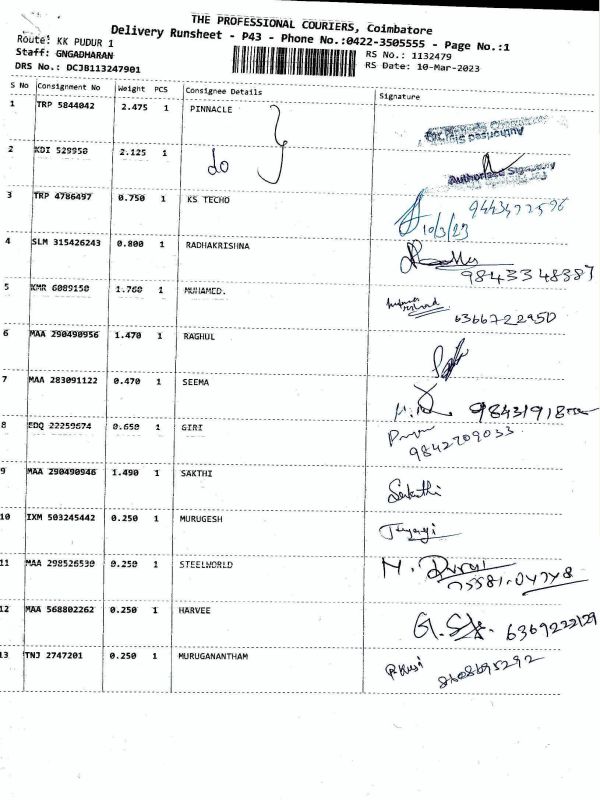 THE PROFESSIONAL COURIERS, Coimbatore
Delivery Runsheet - P43 - Phone No.:0422-3505555 - Page No.:1
Route: KK PUDUR 1
RS No.: 1132479
Staff: GNGADHARAN
RS Date: 10-Mar-2023
DRS No.: DCJB113247901
S No Consignment No Weight PCS Consignee Details Signature
1 TRP 5844042 2.475 1 PINNACLE
Authorised
2 KDI 529950 2.125 1 do
Authorised Signatory
3 TRP 4786497 0.750 1 KS TECHO 10/3/23 9443472596
4 SLM 315426243 0.800 1 RADHAKRISHNA 9843348387
5 KMR 6089150 1.760 1 MUHAMED. 6366722950
6 MAA 290490956 1.470 1 RAGHUL
7 MAA 283091122 0.470 1 SEEMA
8 EDQ 22259674 0.650 1 GIRI 9842709033
9 MAA 290490946 1.490 1 SAKTHI Sakthi
10 IXM 503245442 0.250 1 MURUGESH
11 MAA 298526530 0.250 1 STEELWORLD
12 MAA 568802262 0.250 1 HARVEE
13 TNJ 2747201 0.250 1 MURUGANANTHAM